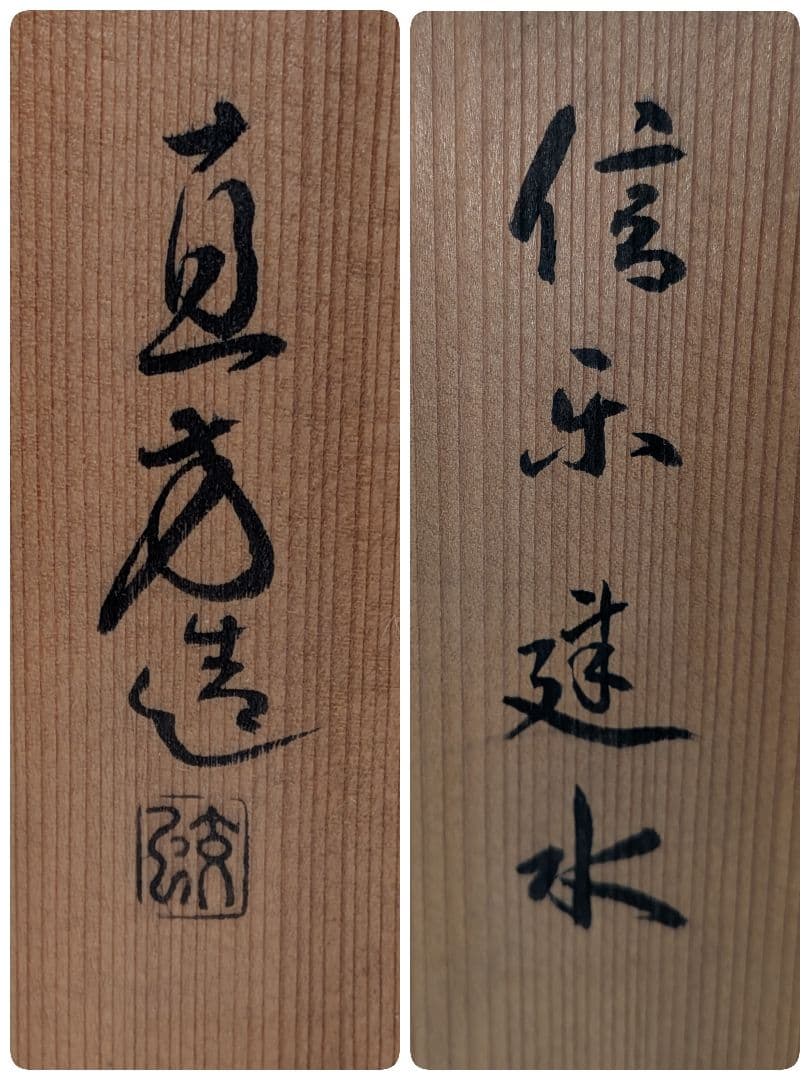 信楽建水
直方造